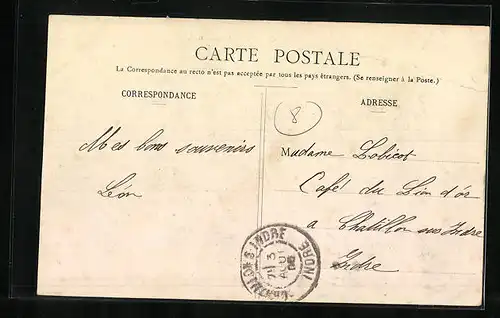 CARTE POSTALE
La Correspondance au recto n'est pas acceptée par tous les pays étrangers. (Se renseigner à la Poste.)
CORRESPONDANCE
ADRESSE
8
Mes bons souvenirs
Léon
Madame Lobicot
Café du Lion d'or
a Chatillon sur Indre
Indre
CHATILLON-S-INDRE
3
AOUT
(INDRE)